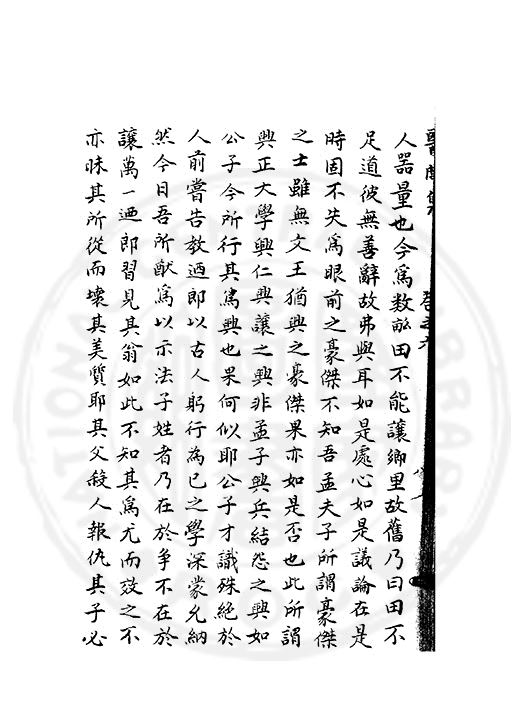 人器量也今爲数畝田不能讓鄉里故舊乃曰田不
足道彼無善辭故弗與耳如是處心如是議論在是
時固不失爲眼前之豪傑不知吾孟夫子所謂豪傑
之士雖無文王猶興之豪傑果亦如是否也此所謂
興正大學興仁興讓之興非孟子興兵結怨之興如
公子今所行其爲興也果何似耶公子才識殊絶於
人前嘗告敎迺郎以古人躬行為已之學深蒙允納
然今日吾所猷爲以示法子姓者乃在於爭不在於
讓萬一迺郎習見其翁如此不知其爲尤而效之不
亦昧其所從而壞其美質耶其父殺人報仇其子必